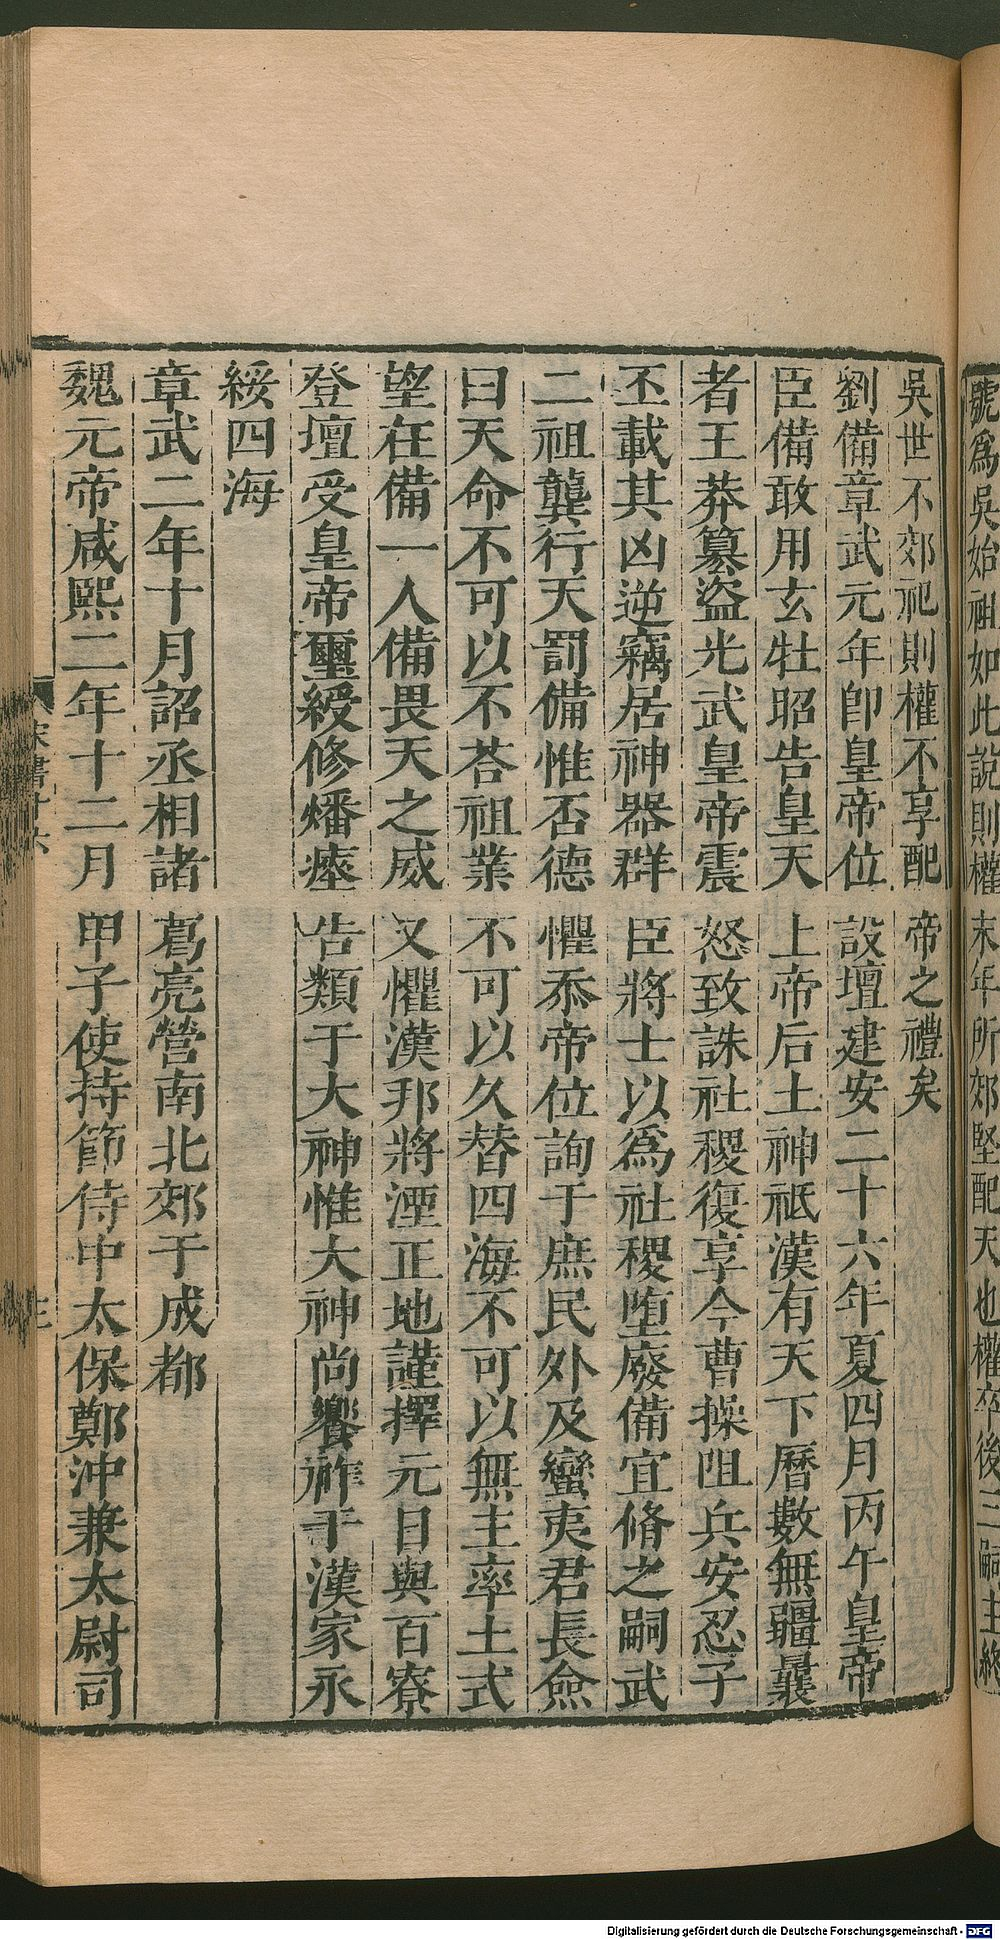 號爲吳始祖如此說則權末年所郊堅配天也權卒後三嗣主終
吳世不郊祀則權不享配帝之禮矣
劉備章武元年卽皇帝位設壇建安二十六年夏四月丙午皇帝
臣備敢用玄牡昭告皇天上帝后土神祇漢有天下曆數無疆曩
者王莽篡盜光武皇帝震怒致誅社稷復享今曹操阻兵安忍子
丕載其凶逆竊居神器群臣將士以爲社稷墮廢備宜脩之嗣武
二祖龔行天罰備惟否德懼忝帝位詢于庶民外及蠻夷君長僉
曰天命不可以不荅祖業不可以久替四海不可以無主率土式
望在備一人備畏天之威又懼漢邦將湮于地謹擇元日與百寮
登壇受皇帝璽綬修燔瘞告類于大神惟大神尚饗祚于漢家永
綏四海
章武二年十月詔丞相諸葛亮營南北郊于成都
魏元帝咸熙二年十二月甲子使持節侍中太保鄭沖兼太尉司
宋書十六
三
Digitalisierung gefördert durch die Deutsche Forschungsgemeinschaft - DFG